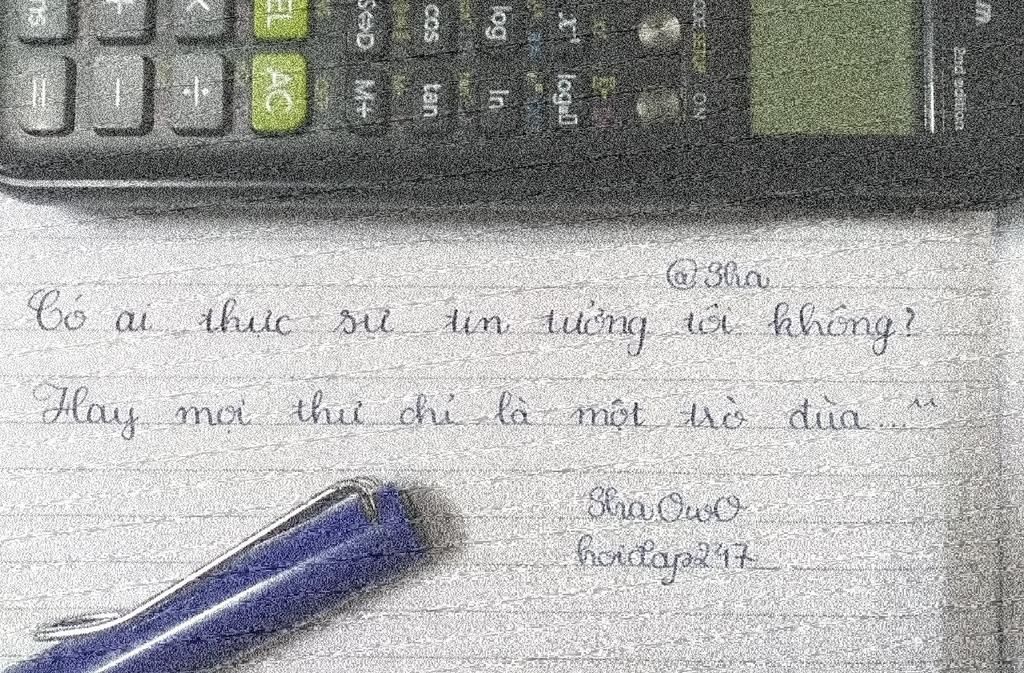 ns + × DEL S⇔D cos log x⁻¹ MODE SETUP
= − ÷ AC M+ tan ln log ON 2nd edition
@Sha
Có ai thực sự tin tưởng tôi không?
Hay mọi thứ chỉ là một trò đùa...^^
Sha OwO
hoidap247